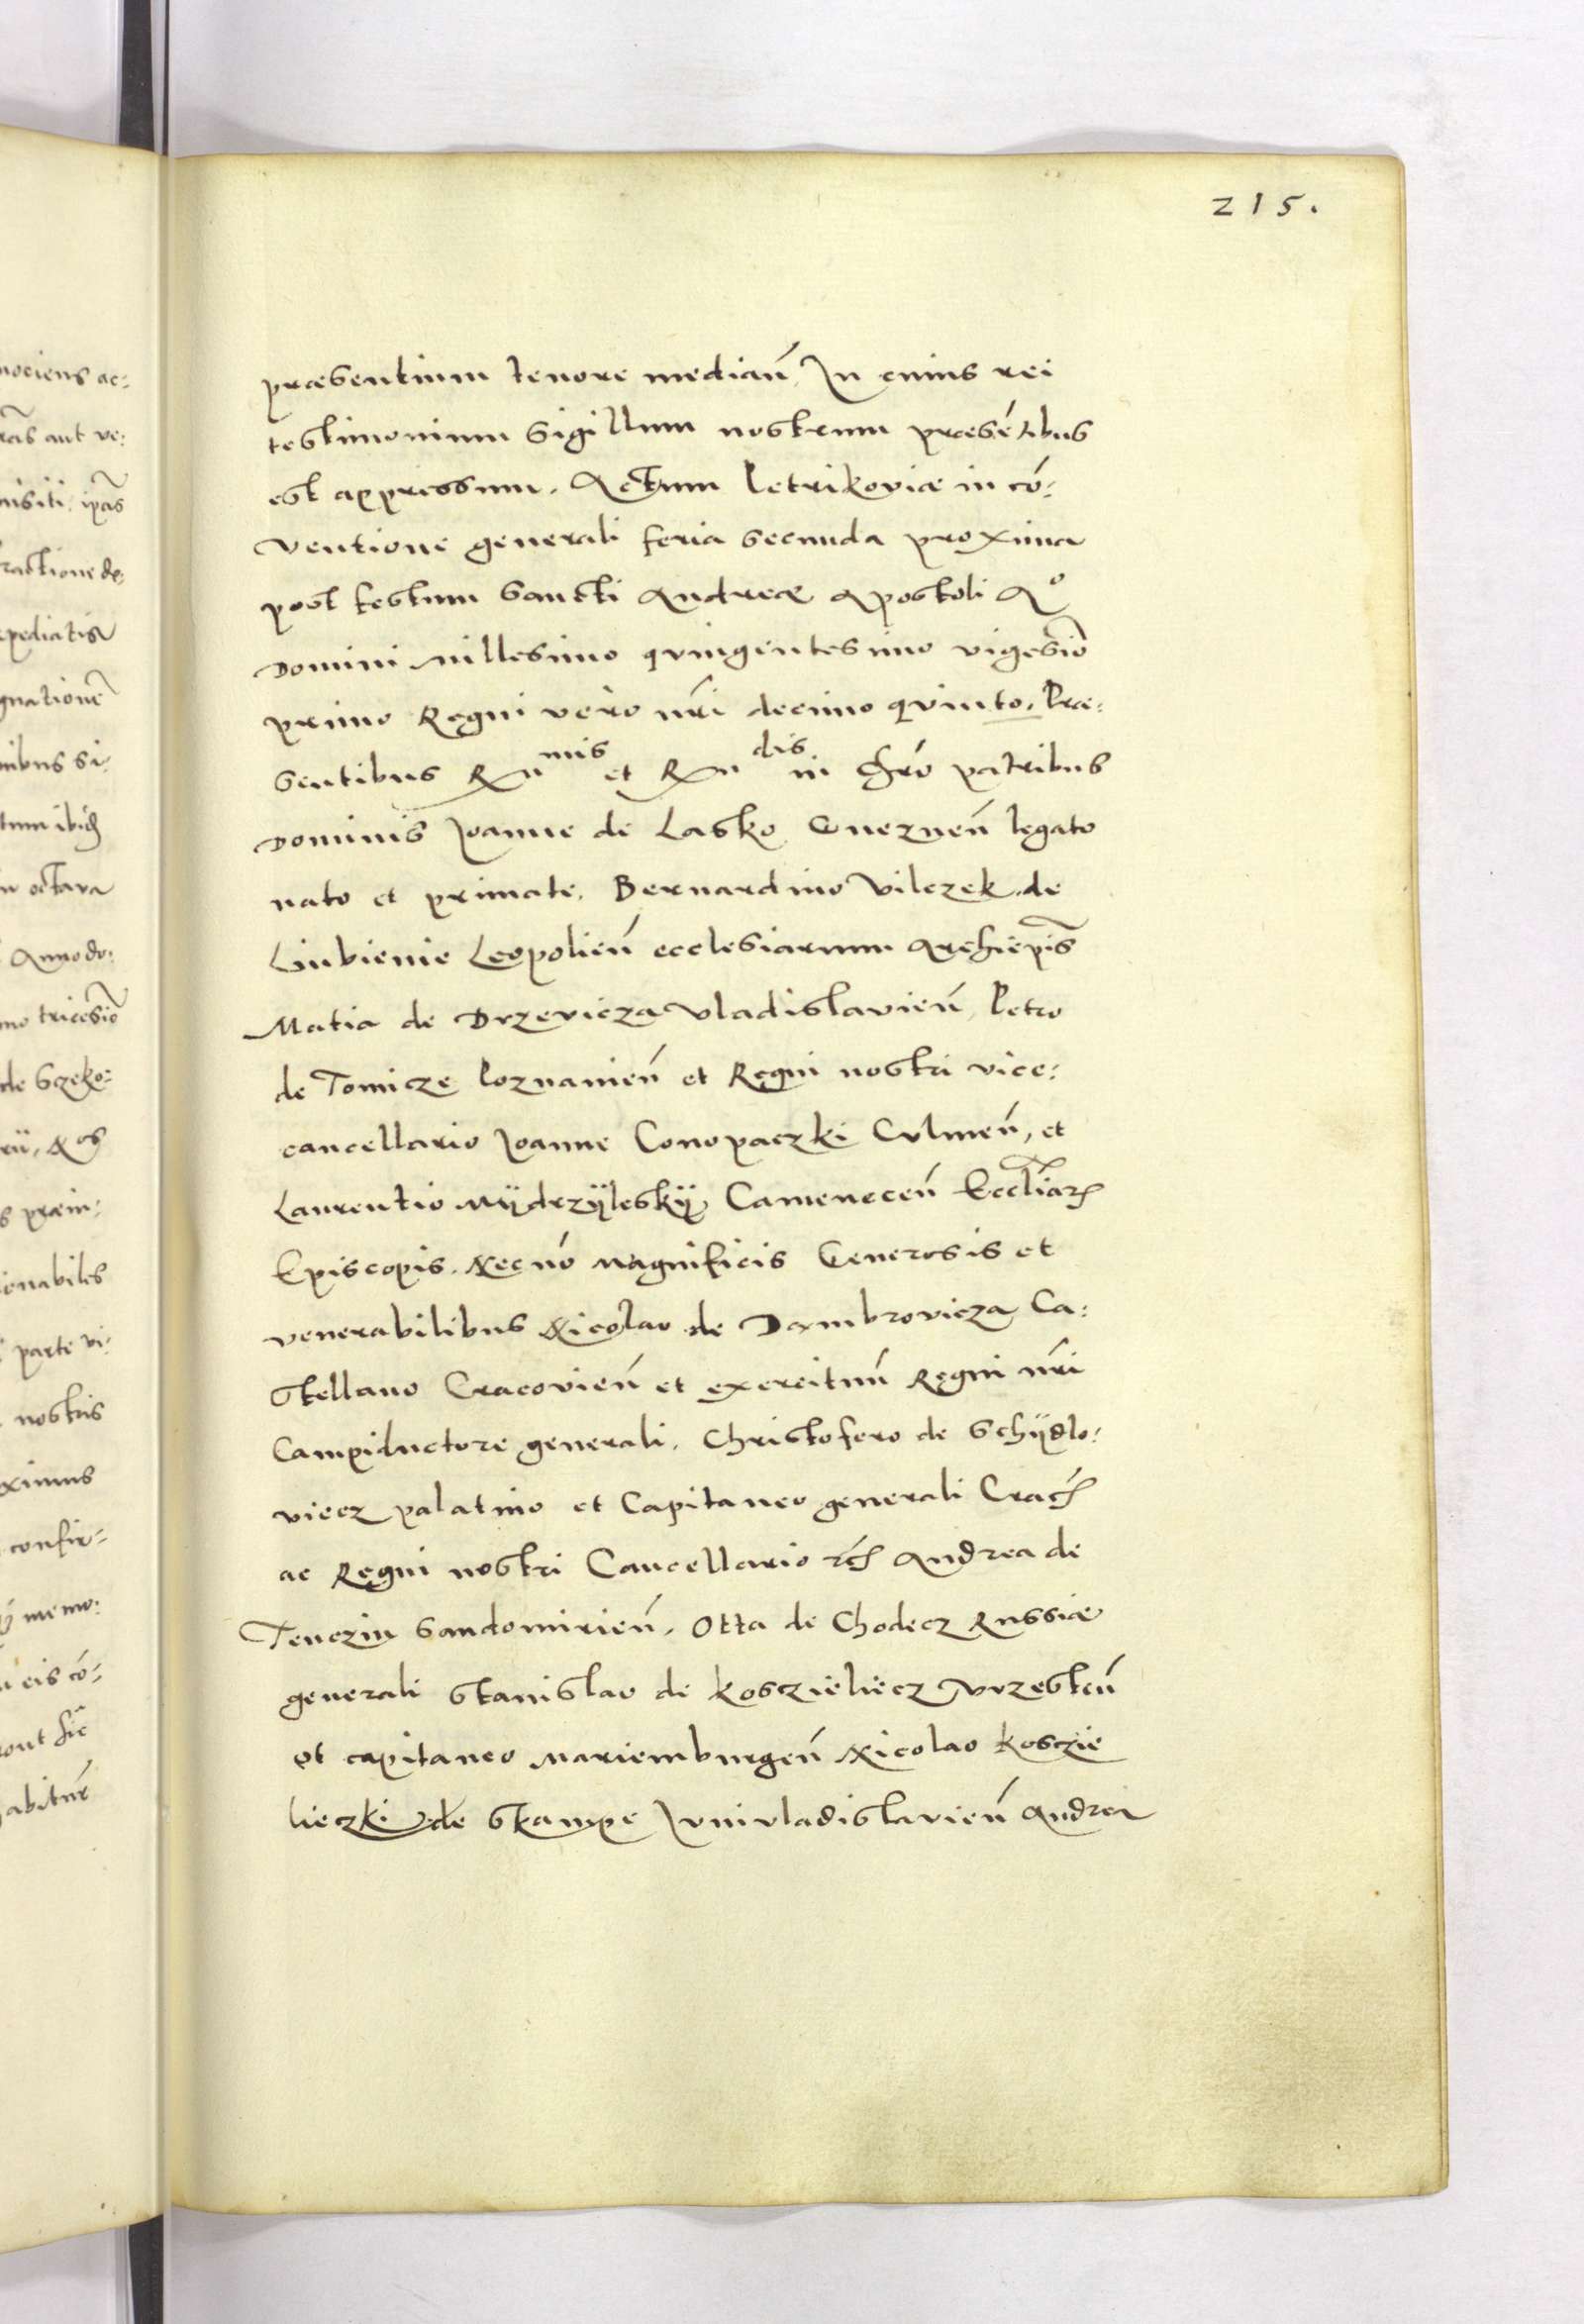 215.
præsentium tenore median̄. In cuius rei
testimonium sigillum nostrum præsẽtibus
est appressum. Actum Petrikoviæ in cõ:
ventione generali feria secunda proxima
post festum Sancti Andreæ Apostoli Aº
Domini Millesimo qvingentesimo vigesiõ
primo Regni vero nr̃i decimo qvinto. Præ:
sentibus Rnmis et Rndis in Chr̃o patribus
Dominis Joanne de Lasko Gneznen̄ legato
nato et primate. Bernardino Vilczek de
Liubienie Leopolien̄ ecclesiarum Archiepis̃
Matia de Drzevicza Vladislavien̄, Petro
de Tomicze Poznanien̄ et Regni nostri vice:
cancellario Joanne Conopaczki Culmen̄, et
Laurentio Mÿdrzÿleskÿ Camenecen̄ Eccl̃iarꝫ
Episcopis. Necnõ Magnificis Generosis et
venerabilibus Nicolao de Dambrovicza Ca:
stellano Cracovien̄ et exercituum̄ Regni nr̃i
Campiductore generali. Christofero de Schÿdlo:
viecz palatino et Capitaneo generali Cracꝫ
ac Regni nostri Cancellario rcꝫ Andrea de
Tenczin Sandomirien̄. Otta de Chodecz Russiæ
generali Stanislao de Kosczieliecz Brzesten̄
et capitaneo Mariemburgen̄ Nicolao Kosczie
lieczki de Skampe Junivladislavien̄ Andrea
nociens ac:
aut ve:
nisiti. ip̃as
ractione de:
pediatis
gnationẽ
nibus si:
tum ibidꝫ
n octava
Anno do:
mo tricesiõ
de Sczeko:
s præin:
ionabiles
parte vi:
nostris
oximus
confir-
memo:
eis cõ-
abitur̃